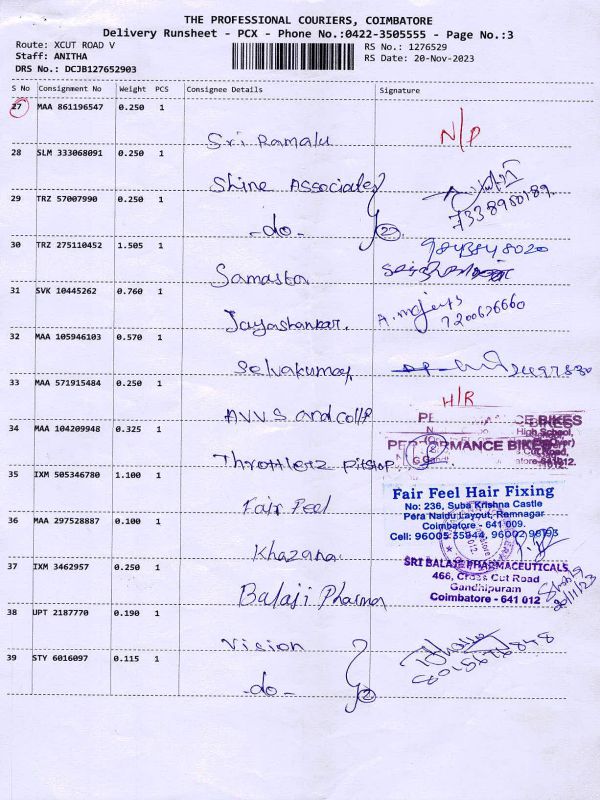 THE PROFESSIONAL COURIERS, COIMBATORE
Delivery Runsheet - PCX - Phone No.:0422-3505555 - Page No.:3
Route: XCUT ROAD V RS No.: 1276529
Staff: ANITHA RS Date: 20-Nov-2023
DRS No.: DCJB127652903
S No Consignment No Weight PCS Consignee Details Signature
27 MAA 861196547 0.250 1
Sri Ramalu N/P
28 SLM 333068091 0.250 1
Shine Associates
29 TRZ 57007990 0.250 1 7338980189
-do- 2
30 TRZ 275110452 1.505 1 9843848020
Samasta
31 SVK 10445262 0.760 1
Jayashankar. 7200626660
32 MAA 105946103 0.570 1
Selvakumar
33 MAA 571915484 0.250 1 H/R
A.V.V.S and
34 MAA 104209948 0.325 1
PERFORMANCE BIKES
High School,
PERFORMANCE BIKES
Cut Road,
Throttlerz pitstop
35 IXM 505346780 1.100 1
Fair Feel
Fair Feel Hair Fixing
No: 236, Suba Krishna Castle
Pera Naidu Layout, Ramnagar
Coimbatore - 641 009.
Cell: 96005 35944, 96002 96193
36 MAA 297528887 0.100 1
Khazana
37 IXM 3462957 0.250 1
Balaji Pharma
SRI BALAJI PHARMACEUTICALS
466, Cross Cut Road
Gandhipuram
Coimbatore - 641 012
20/11/23
38 UPT 2187770 0.190 1
Vision
39 STY 6016097 0.115 1
-do- 2